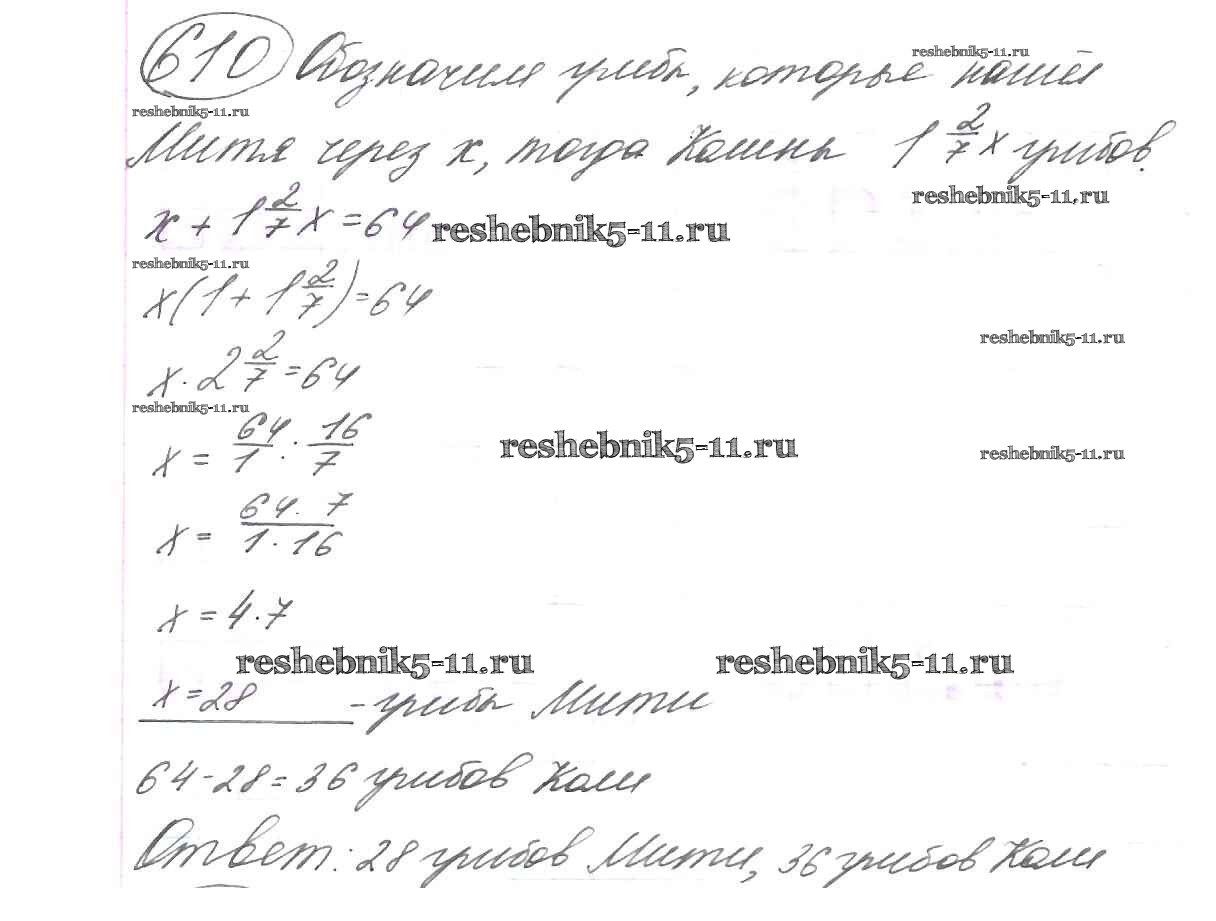 610 Обозначим грибы, которые нашёл
reshebnik5-11.ru
reshebnik5-11.ru
Митя через x, тогда Колины 1 2/7 x грибов.
reshebnik5-11.ru
x + 1 2/7 x = 64
reshebnik5-11.ru
reshebnik5-11.ru
x(1 + 1 2/7) = 64
reshebnik5-11.ru
x · 2 2/7 = 64
reshebnik5-11.ru
x = 64/1 : 16/7
reshebnik5-11.ru
reshebnik5-11.ru
x = 64 · 7 / 1 · 16
x = 4 · 7
reshebnik5-11.ru
reshebnik5-11.ru
x = 28 - грибы Мити
64 - 28 = 36 грибов Коли
Ответ: 28 грибов Мити, 36 грибов Коли